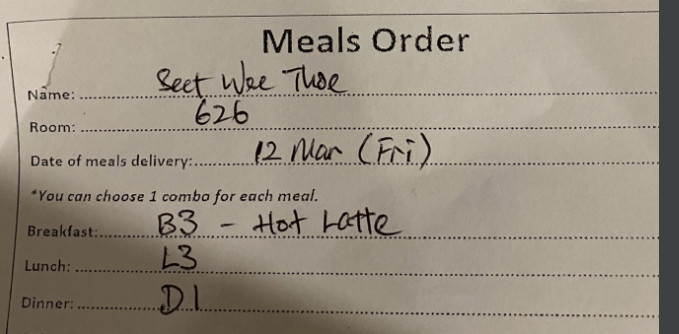 Meals Order
Name: Seet Wee Thoe
Room: 626
Date of meals delivery: 12 Mar (Fri)
*You can choose 1 combo for each meal.
Breakfast: B3 - Hot Latte
Lunch: L3
Dinner: D1